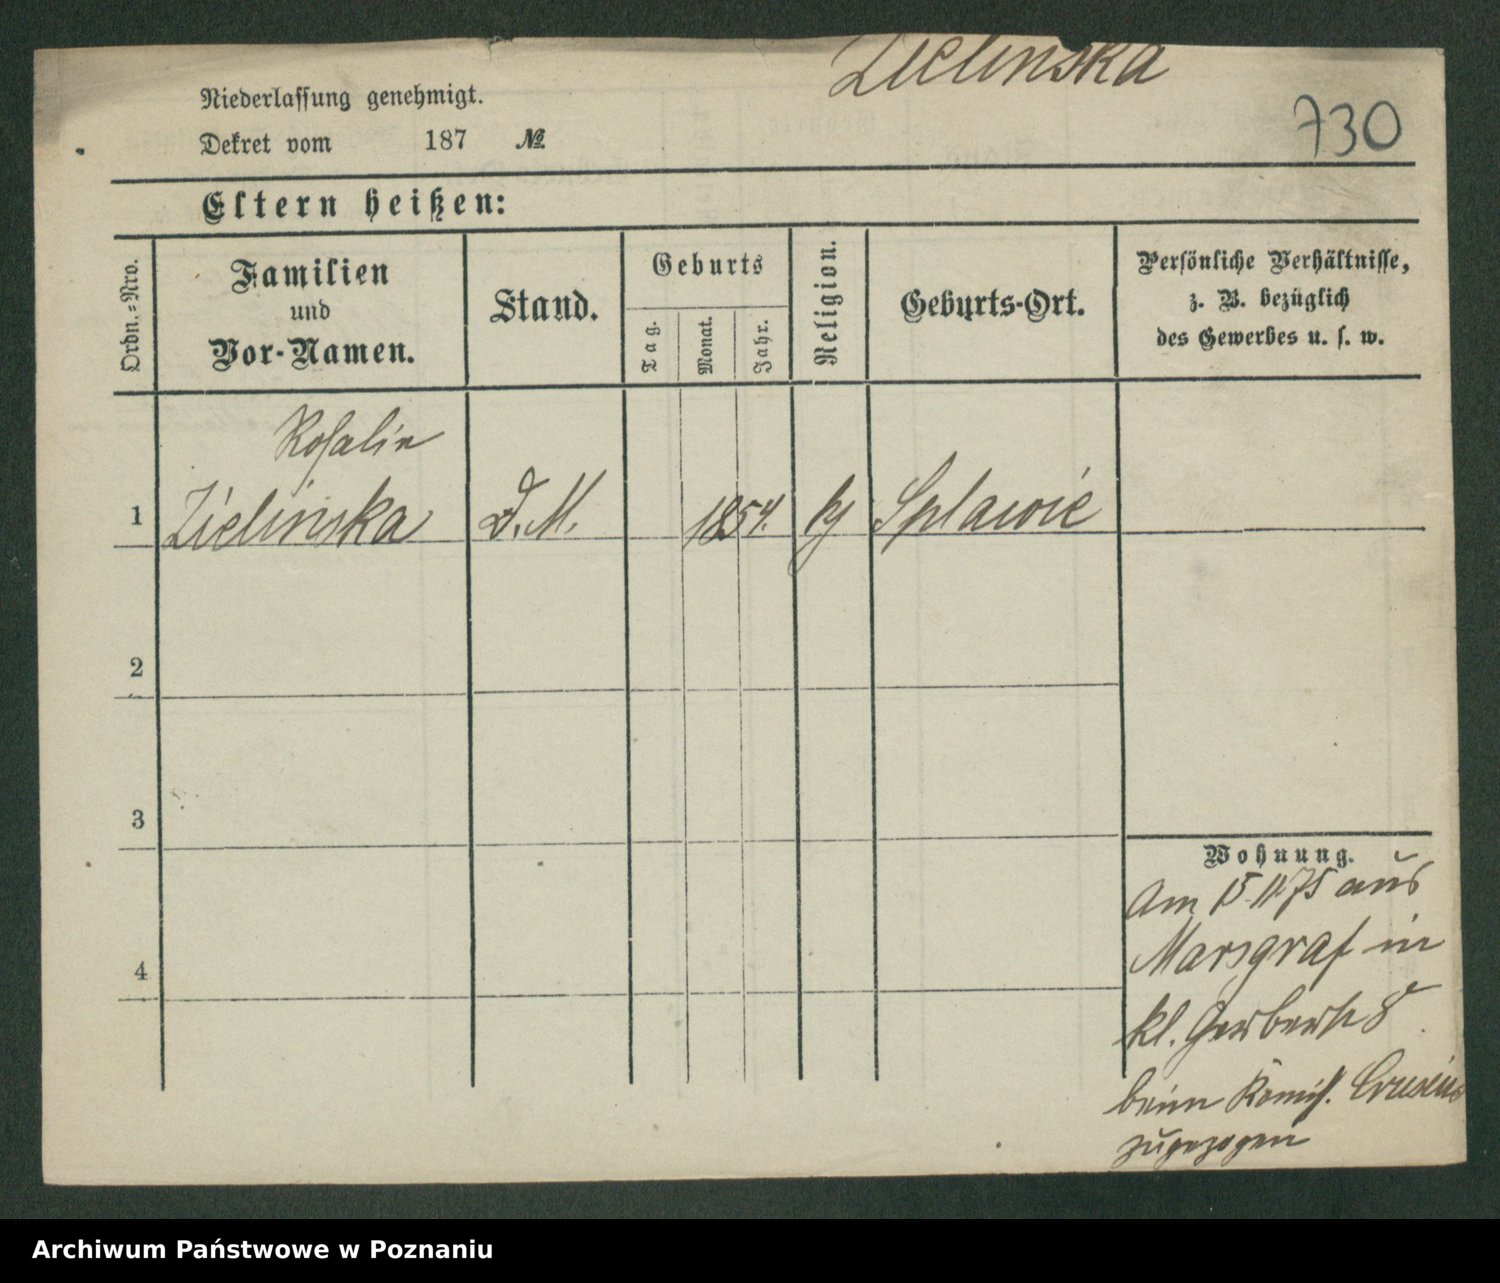 Zielinska
730
Niederlassung genehmigt.
Dekret vom 187 №
Eltern heißen:
Ordn.-Nro.
Familien
und
Vor-Namen.
Stand.
Geburts
Tag.
Monat.
Jahr.
Religion.
Geburts-Ort.
Persönliche Verhältnisse,
z. B. bezüglich
des Gewerbes u. s. w.
Rosalie
1 Zielinska D.M. 1854. Splawie
2
3
4
Wohnung.
Am 15.11.75 aus
in
kl. Gerberstr 8
beim Crusius
zugezogen
Archiwum Państwowe w Poznaniu